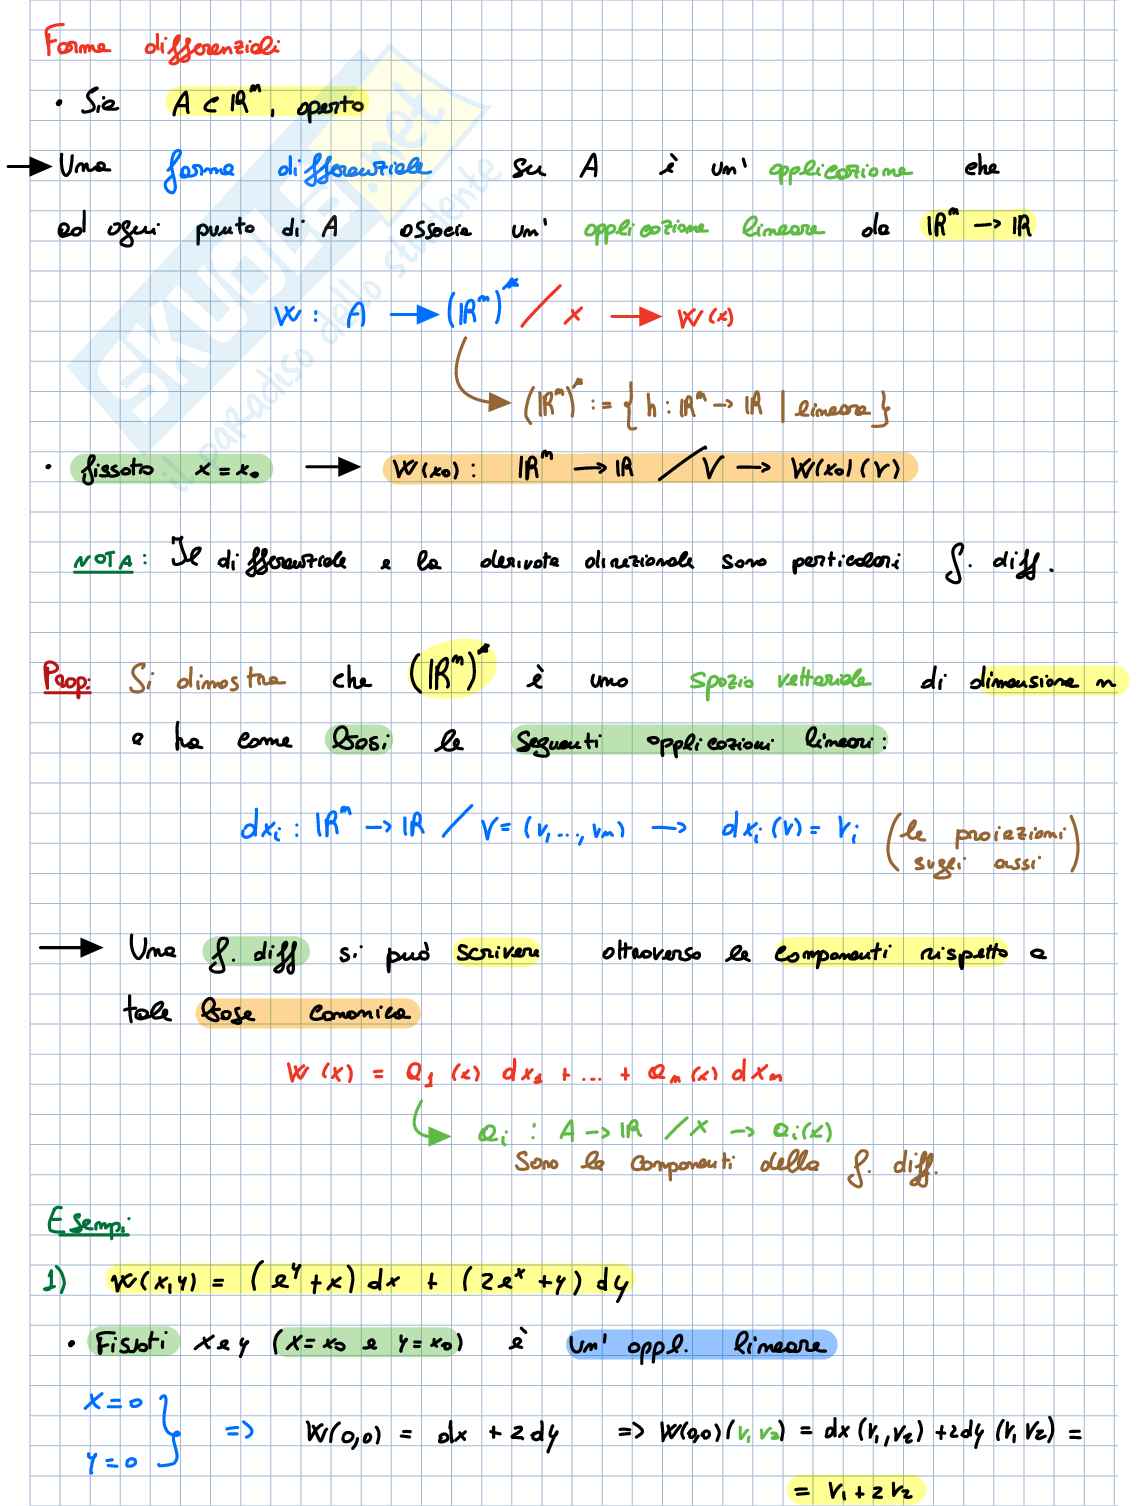 Forme differenziali
• Sia A ⊂ ℝⁿ, aperto
→ Una forma differenziale su A è un' applicazione che
ad ogni punto di A associa un' applicazione lineare da ℝⁿ → ℝ
W : A → (ℝⁿ)* / x → W(x)
(ℝⁿ)* := { h : ℝⁿ → ℝ | lineare }
• fissato x = x₀ → W(x₀) : ℝⁿ → ℝ / V → W(x₀)(V)
NOTA: Il differenziale e la derivata direzionale sono particolari f. diff.
Prop: Si dimostra che (ℝⁿ)* è uno spazio vettoriale di dimensione n
e ha come basi le seguenti applicazioni lineari:
dxᵢ : ℝⁿ → ℝ / V = (v₁, ..., vₙ) → dxᵢ(v) = vᵢ (le proiezioni
sugli assi)
→ Una f. diff si può scrivere attraverso le componenti rispetto a
tale base canonica
W(x) = a₁(x) dx₁ + ... + aₙ(x) dxₙ
aᵢ : A → ℝ / x → aᵢ(x)
Sono le componenti della f. diff.
Esempi
1) W(x,y) = (e^y + x) dx + (2e^x + y) dy
• Fissati x e y (x = x₀ e y = x₀) è un' appl. lineare
x = 0
y = 0 } => W(0,0) = dx + 2dy => W(0,0)(v₁ v₂) = dx(v₁, v₂) + 2dy(v₁ v₂) =
= v₁ + 2v₂
SKUOLA.net
il paradiso dello studente